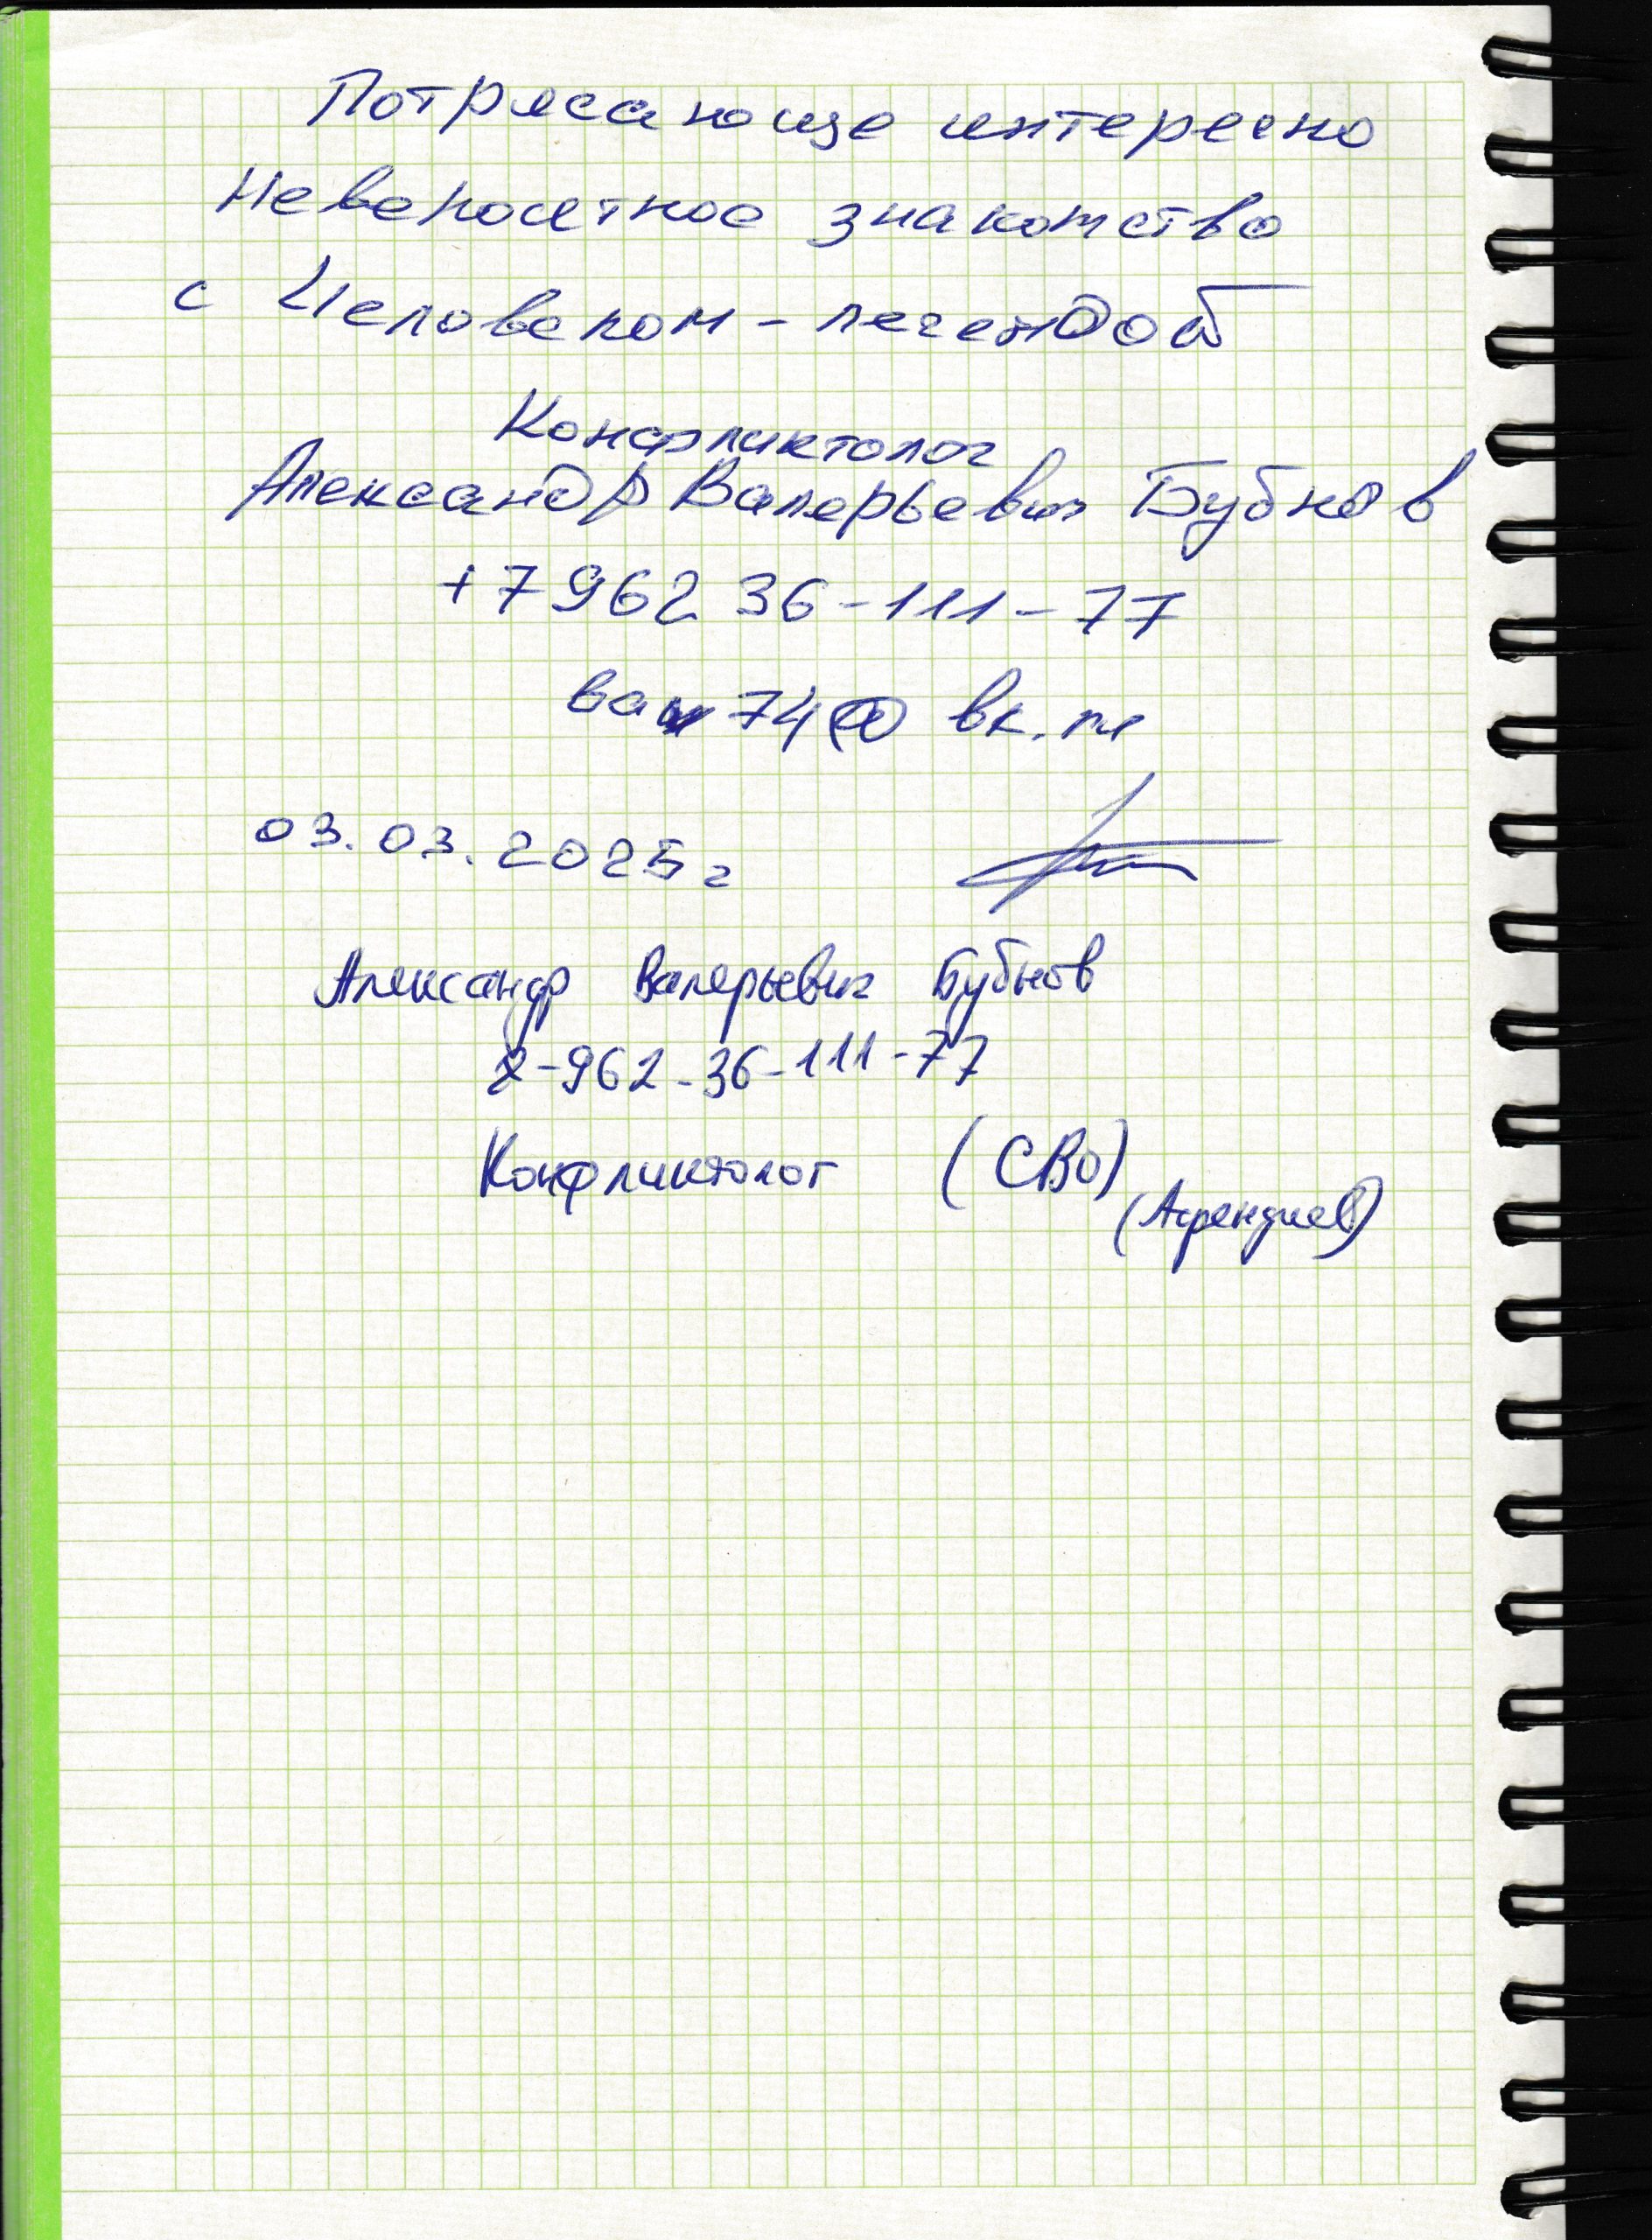 Потрясающе интересно
Невероятное знакомство
с Человеком - легендой
Конфликтолог
Александр Валерьевич Бубнов
+7 962 36-111-77
74@ вк.
03.03.2025 г
Александр Валерьевич Бубнов
8-962-36-111-77
Конфликтолог (СВО)
(Афендиев)